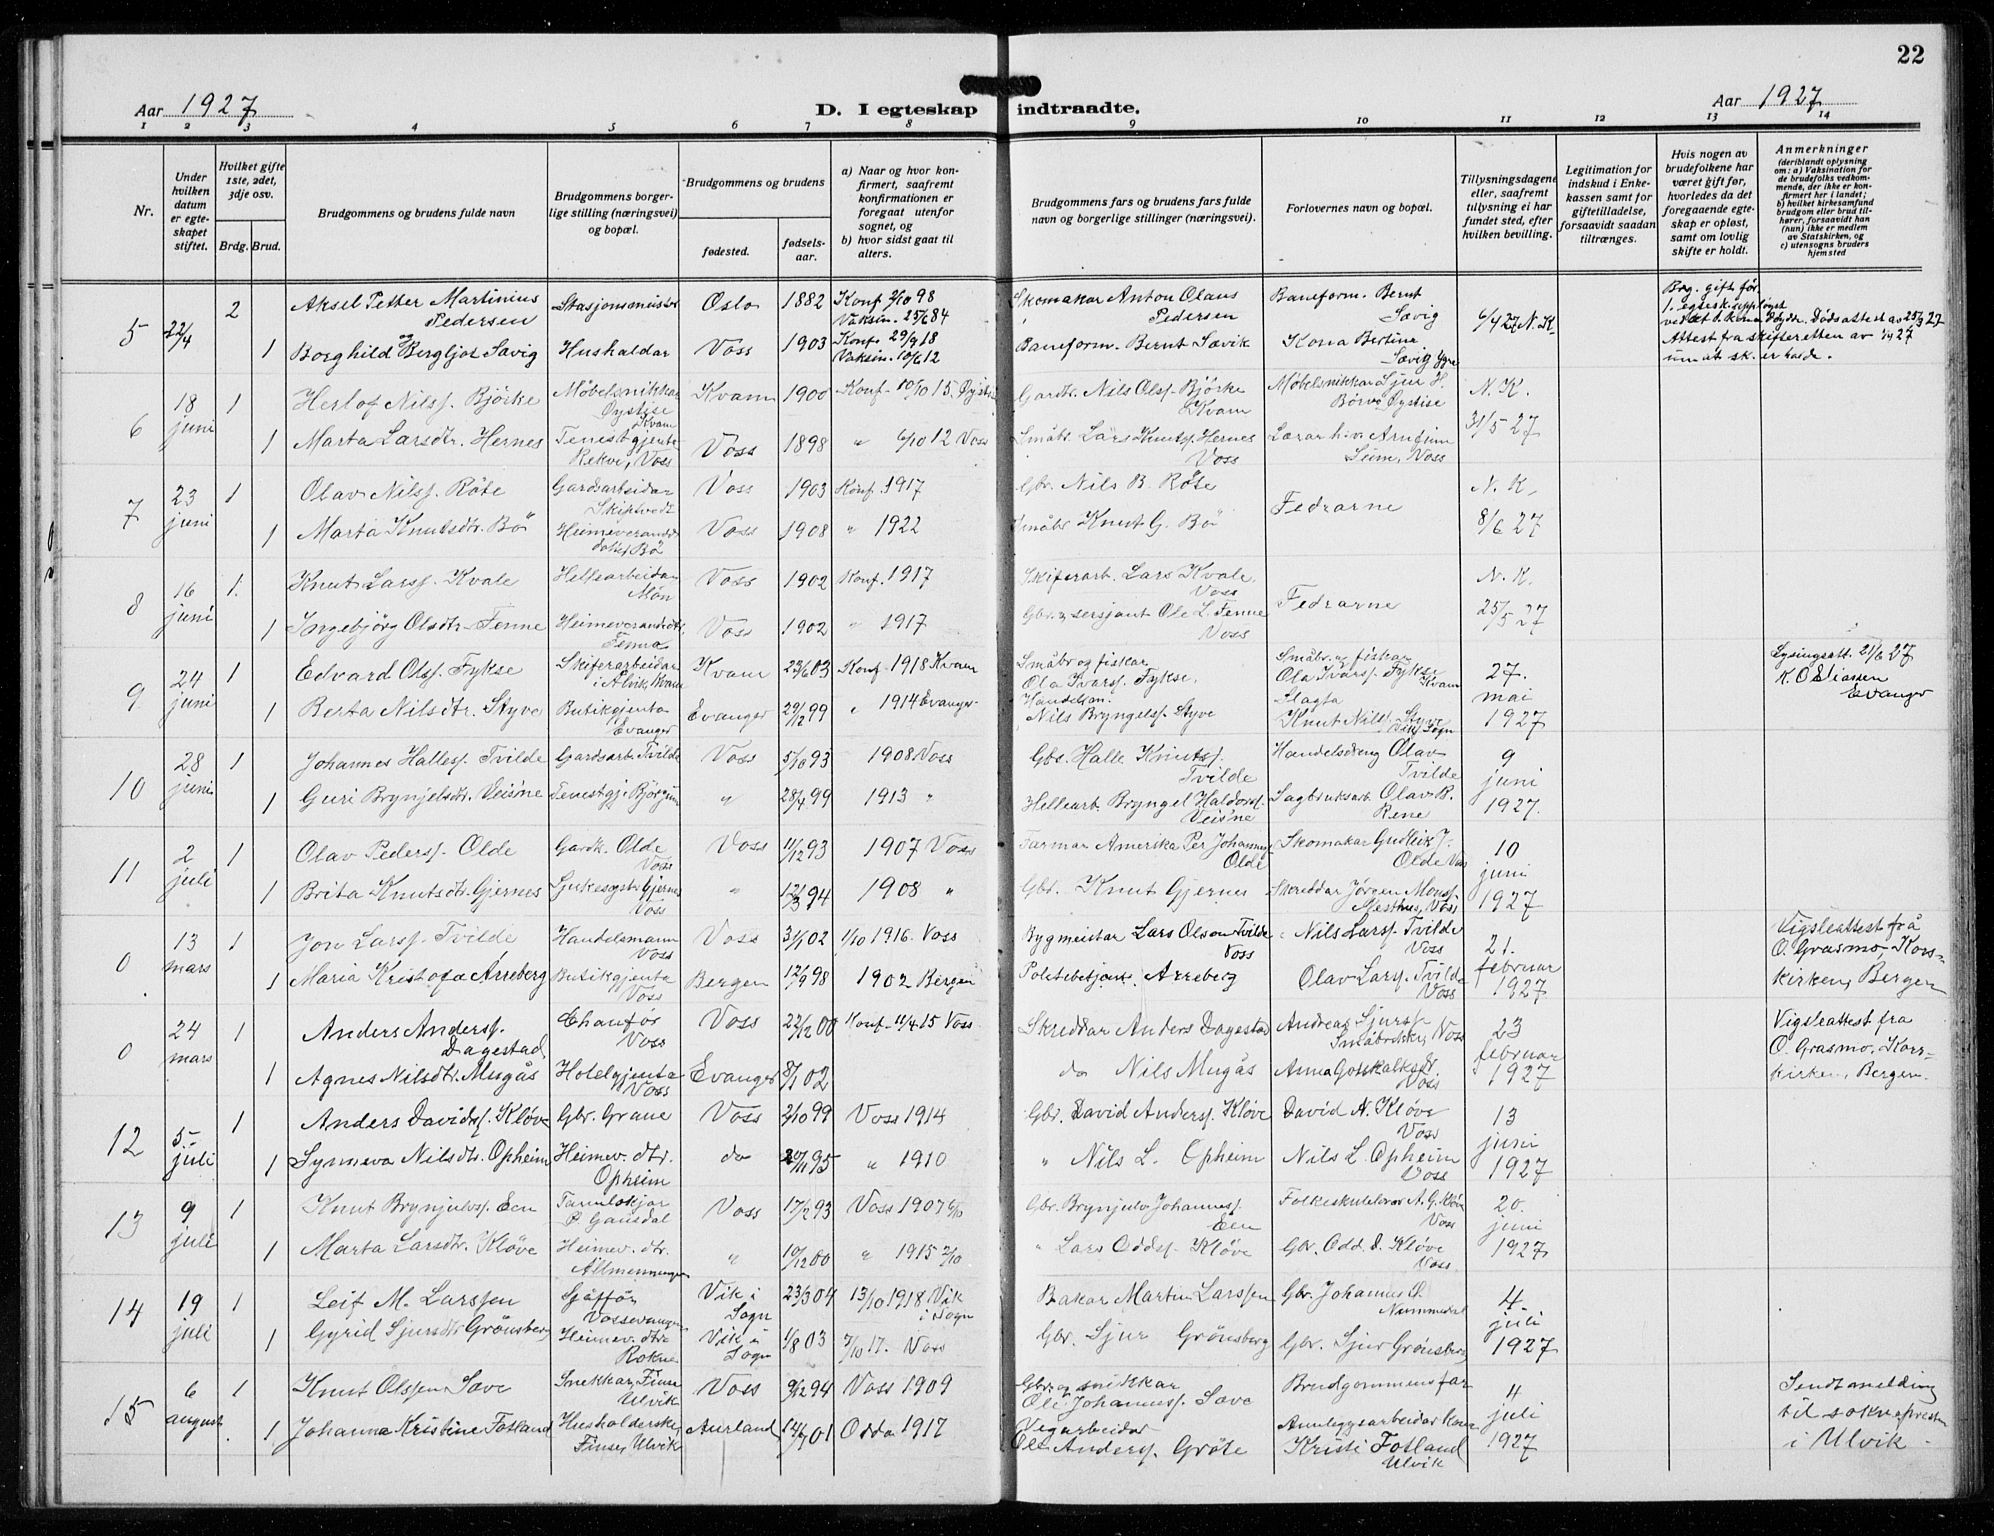 22
Aar 1927
D. I egteskap indtraadte.
Aar 1927
1 2 3 4 5 6 7 8 9 10 11 12 13 14
Nr.
Under hvilken datum er egteskapet stiftet.
Hvilket gifte 1ste, 2det, 3dje osv.
Brdg. Brud.
Brudgommens og brudens fulde navn
Brudgommens borgerlige stilling (næringsvei) og bopæl.
Brudgommens og brudens
fødested.
fødselsaar.
a) Naar og hvor konfirmert, saafremt konfirmationen er foregaat utenfor sognet, og
b) hvor sidst gaat til alters.
Brudgommens fars og brudens fars fulde navn og borgerlige stillinger (næringsvei).
Forlovernes navn og bopæl.
Tillysningsdagene eller, saafremt tillysning ei har fundet sted, efter hvilken bevilling.
Legitimation for indskud i Enkekassen samt for giftetilladelse, forsaavidt saadan tiltrænges.
Hvis nogen av brudefolkene har været gift før, hvorledes da det foregaaende egteskap er opløst, samt om lovlig skifte er holdt.
Anmerkninger
(deriblandt oplysning om: a) Vaksination for de brudefolks vedkommende, der ikke er konfirmert her i landet; b) hvilket kirkesamfund brudgom eller brud tilhører, forsaavidt han (hun) ikke er medlem av Statskirken, og c) utensogns bruders hjemsted
5 22/4 2 Aksel Petter Martinius Pedersen Stasjonsmeister Oslo 1882 Konf. 2/10 98 Vaksin. 25/6 84 Skomakar Anton Olaus Pedersen Baneform. Bernt Sævig 6/4 27 N.K.
1 Borghild Bergljot Sævig Hushaldar Voss 1903 Konf. 29/9 18 Vaksin. 10/6 12 Baneform. Bernt Sævik Kona Bertina Sævig
6 18 juni 1 Herlof Nilss. Bjørke Møbelsnikkar Øystise Kvam Kvam 1900 Konf. 10/10 15 Øystise Gardbr. Nils Olss. Bjørke Kvam Møbelsnikkar Sjur H. Børve Øystise N.K.
1 Marta Larsdtr. Hernes Tenestgjenta Rekve, Voss Voss 1898 " 6/10 12 Voss Småbr. Lars Knutss. Hernes Voss Seim, Voss 31/5 27
7 23 juni 1 Olav Nilss. Røte Gardsarbeidar Voss 1903 Konf. 1917 Gbr. Nils B. Røte Fedrarne N.K.
1 Marta Knutsdtr. Bö Voss 1908 " 1922 Småbr. Knut G. Bö 8/6 27
8 16 juni 1. Knut Larss. Kvale Hellearbeidar Møn Voss 1902 Konf. 1917 Skiferarb. Lars Kvale, Voss Fedrarne N.K.
1 Ingebjörg Olsdtr. Fenne Heimeverandedtr. Fenno Voss 1902 " 1917 Gbr. og sersjant Ole L. Fenne Voss 25/5 27
9 24 juni 1 Edvard Olss. Fykse Skiferarbeidar i Ålvik, Kvam Kvam 23/6 03 Konf. 1918 Kvam Småbr. og fiskar Ola Ivarss. Fykse. Småbr. og fiskar Ola Ivarss. Fykse, Kvam 27. mai 1927 Lysingsatt. 21/6 27 Evanger
1 Berta Nilsdtr. Styve Butikgjenta Evanger Evanger 29/12 99 " 1914 Evanger Nils Bryngelss. Styve Slagta Knut Nilss. Styve
10 28 juni 1 Johannes Halless. Tvilde Gardsarb. Tvilde Voss 5/10 93 1908 Voss Gbr. Halle Knutss. Tvilde Handelsdreng Olav Tvilde 9 juni 1927.
1 Guri Brynjelsdtr. Veisne Tenestgj. Björgum " 28/4 99 1913 " Hellearb. Bryngel Haldorss. Veisne Sagbruksarb. Olav B. Rene
11 2 juli 1 Olav Pederss. Olde Gardk. Olde Voss Voss 11/12 93 1907 Voss Farmar Amerika Per Johanness. Olde Skomakar Gudleik J. Olde Voss 10 juni 1927
1 Brita Knutsdtr. Gjernes Sjukesyst. Gjernes Voss " 12/3 94 1908 " Gbr. Knut Gjernes Skreddar Jørgen Monss. Mesthus, Voss
0 13 mars 1 Jon Larss. Tvilde Handelsmann Voss Voss 31/1 02 1/10 1916. Voss Bygmeistar Lars Olson Tvilde Voss Nils Larss. Tvilde Voss 21. februar 1927 Vigsleattest frå O. Grasmo, Korskirken, Bergen
1 Maria Kristofa Arreberg Butikgjenta Voss Bergen 12/9 98 1902 Bergen Politebetjent Arreberg Olav Larss. Tvilde Voss
0 24 mars 1 Anders Anderss. Dagestad Chauför Voss Voss 22/12 00 Konf. 11/4 15 Voss. Skreddar Anders Dagestad Andreas Sjurss. Voss 23 februar 1927 Vigsleattest fra O. Grasmo, Korskirken, Bergen.
1 Agnes Nilsdtr. Mugås Hotelgjenta Voss Evanger 8/1 02 do Nils Mugås Anna Gotskalksd. Voss
12 5 juli 1 Anders Davidss. Kløve Gbr. Grane Voss 2/10 99 Voss 1914 Gbr. David Anderss. Kløve David A. Kløve Voss 13 juni 1927
1 Synneva Nilsdtr. Opheim Heimev. dtr. Opheim do 27/11 95 " 1910 " Nils L. Opheim Nils L. Opheim Voss
13 9 juli 1 Knut Brynjulvss. Een Gausdal Voss 17/12 93 Voss 1907 6/10 Gbr. Brynjulv Johanness. Een Folkeskulelærar A. G. Kløve Voss 20. juni 1927
1 Marta Larsdtr. Kløve Heimev. dtr. Allmenningen " 19/12 00 " 1915 3/10 " Lars Oddss. Kløve Gbr. Odd. D. Kløve Voss.
14 19 juli 1 Leif M. Larssen Sjåffør Vossevangen Vik i Sogn 23/3 04 13/10 1918 Vik i Sogn Bakar Martin Larssen Gbr. Johannes O. Nummedal 4. juli 1927
1 Gyrid Sjursdtr Grönsberg Heimev. dtr. Rokne Vik i Sogn 1/8 03 7/10 17. Voss Gbr. Sjur Grönsberg Gbr. Sjur Grönsberg
15 6 august 1 Knut Olssen Save Snekkar, Finse Ulvik Voss 9/12 94 Voss 1909 Gbr. og snikkar Ole Johanness. Save Brudgommens far 4 juli 1927 Sendt melding til soknepresten i Ulvik.
1 Johanna Kristine Fotland Husholderske, Finse, Ulvik Aurland 14/9 01 Odda 1917 Vegarbeidar Ole Anderss. Grøte Anleggsarbeidar kona Kristi Fotland Ulvik